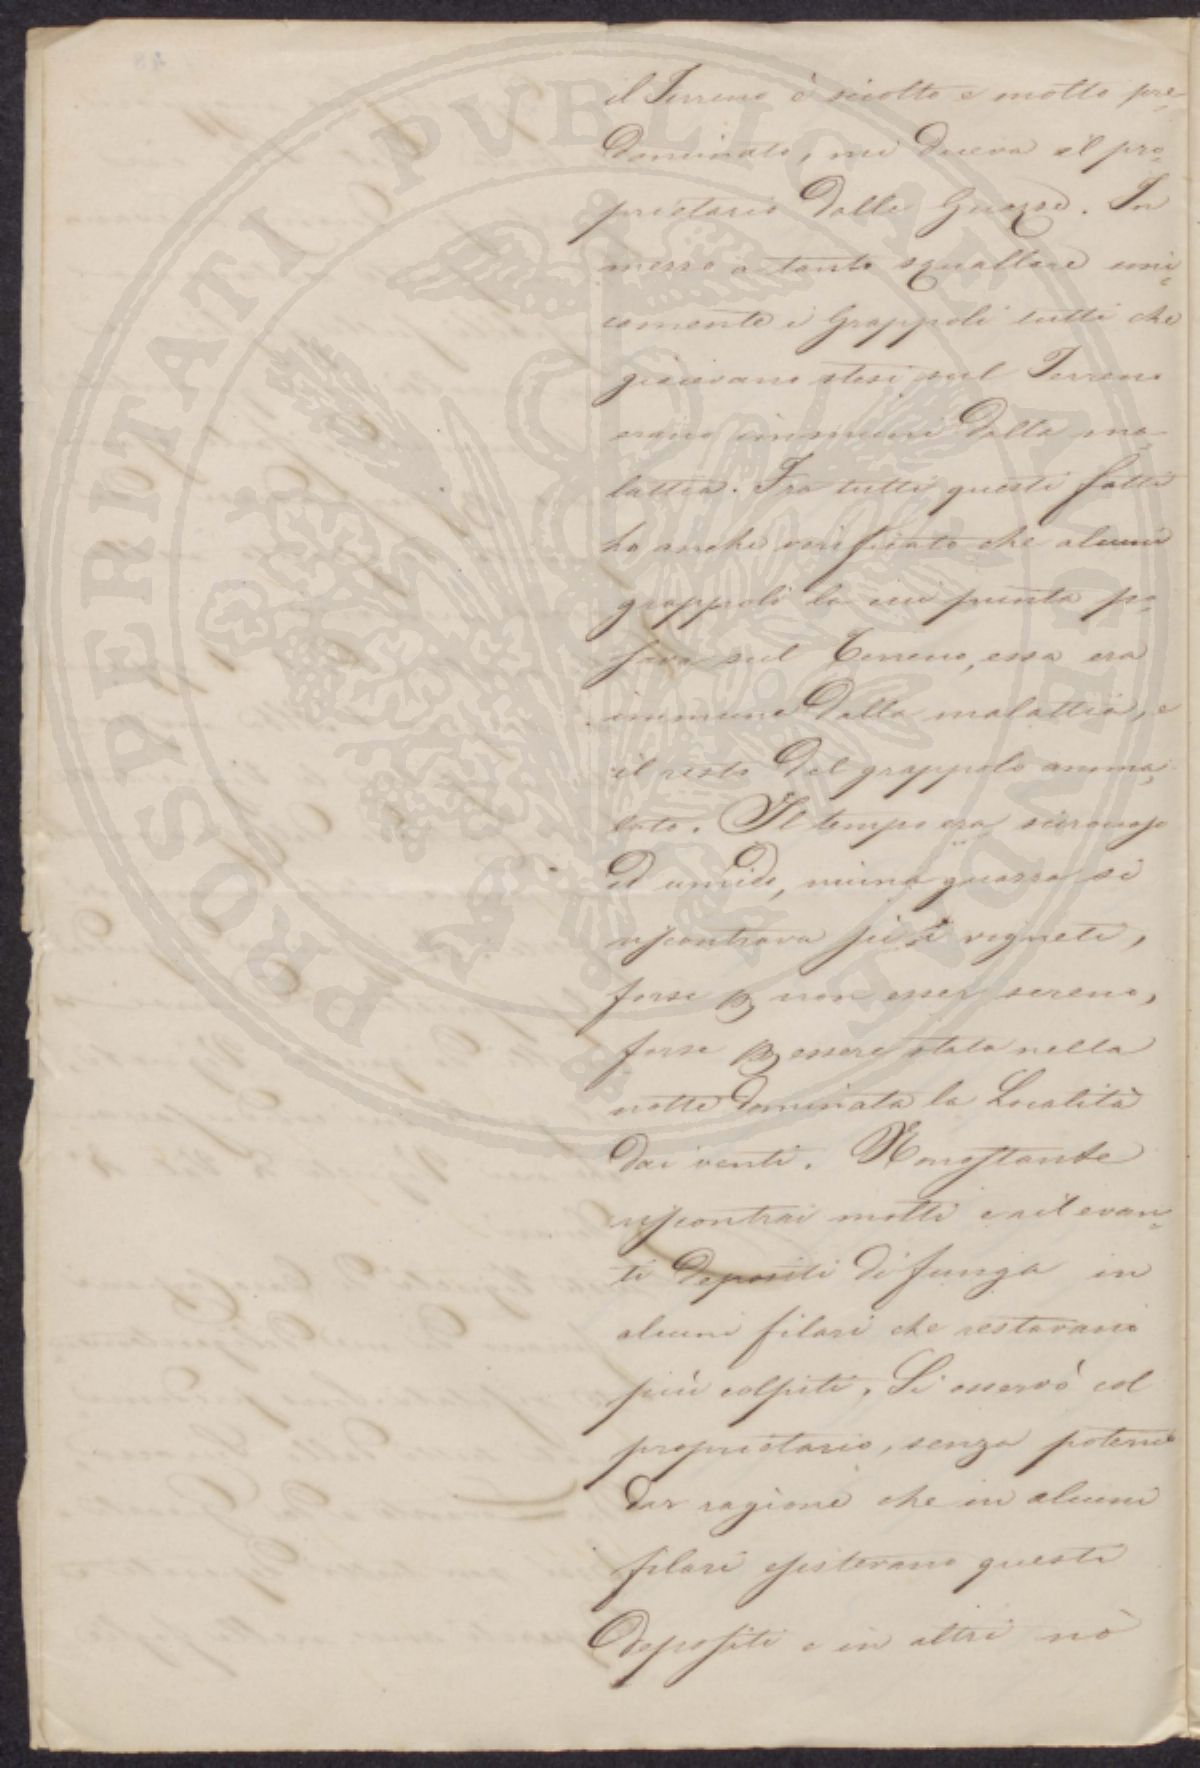 il Terreno è sciolto e molto pre=
dominato, mi diceva il pro=
prietario dalle Guazze. In
mezzo a tanto squallore uni=
camente i Grappoli tutti che
giacevano stesi sul Terreno
erano immuni dalla ma=
lattia. Fra tutti questi fatti
ho anche verificato che alcuni
grappoli la cui punta po=
sava sul Terreno, essa era
immune dalla malattia, e
il resto del grappolo amma=
lato. Il tempo era sciroccoso
ed umido, niuna guazza si
riscontrava pei vigneti,
forse p non esser sereno,
forse p essere stata nella
notte dominata la Località
dai venti. Nonostante
riscontrai molti e rilevan=
ti depositi di funga in
alcuni filari che restavano
più colpiti. Si osservò col
proprietario, senza poterne
dar ragione che in alcuni
filari esistevano questi
depositi e in altri nò
PROSPERITATI PUBLICAE AUGENDAE